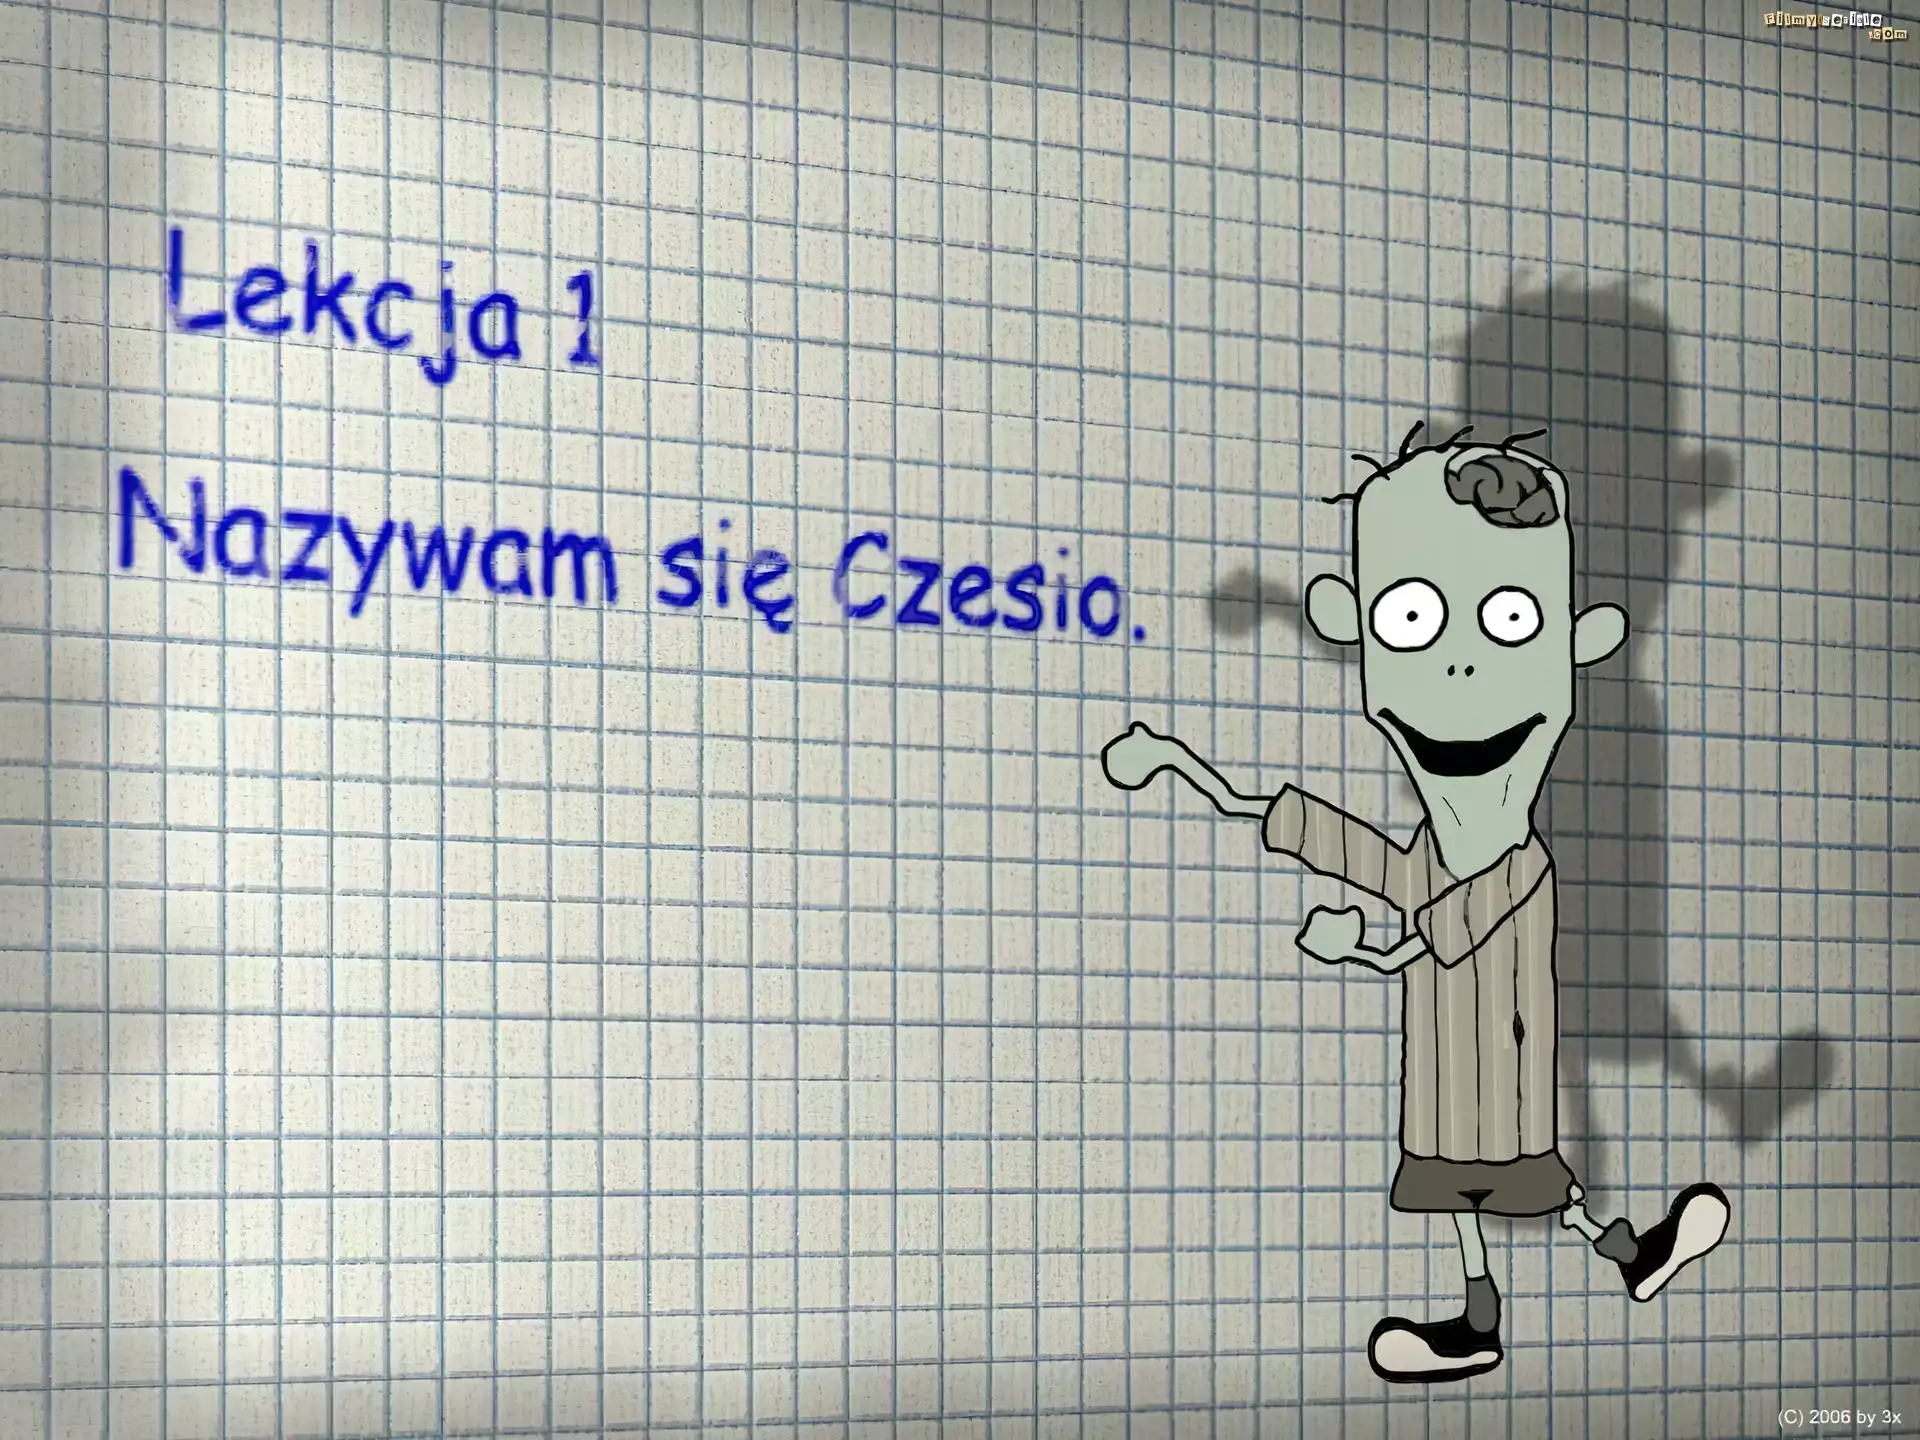 Filmy seriale
.com
Lekcja 1
Nazywam się Czesio.
(C) 2006 by 3x